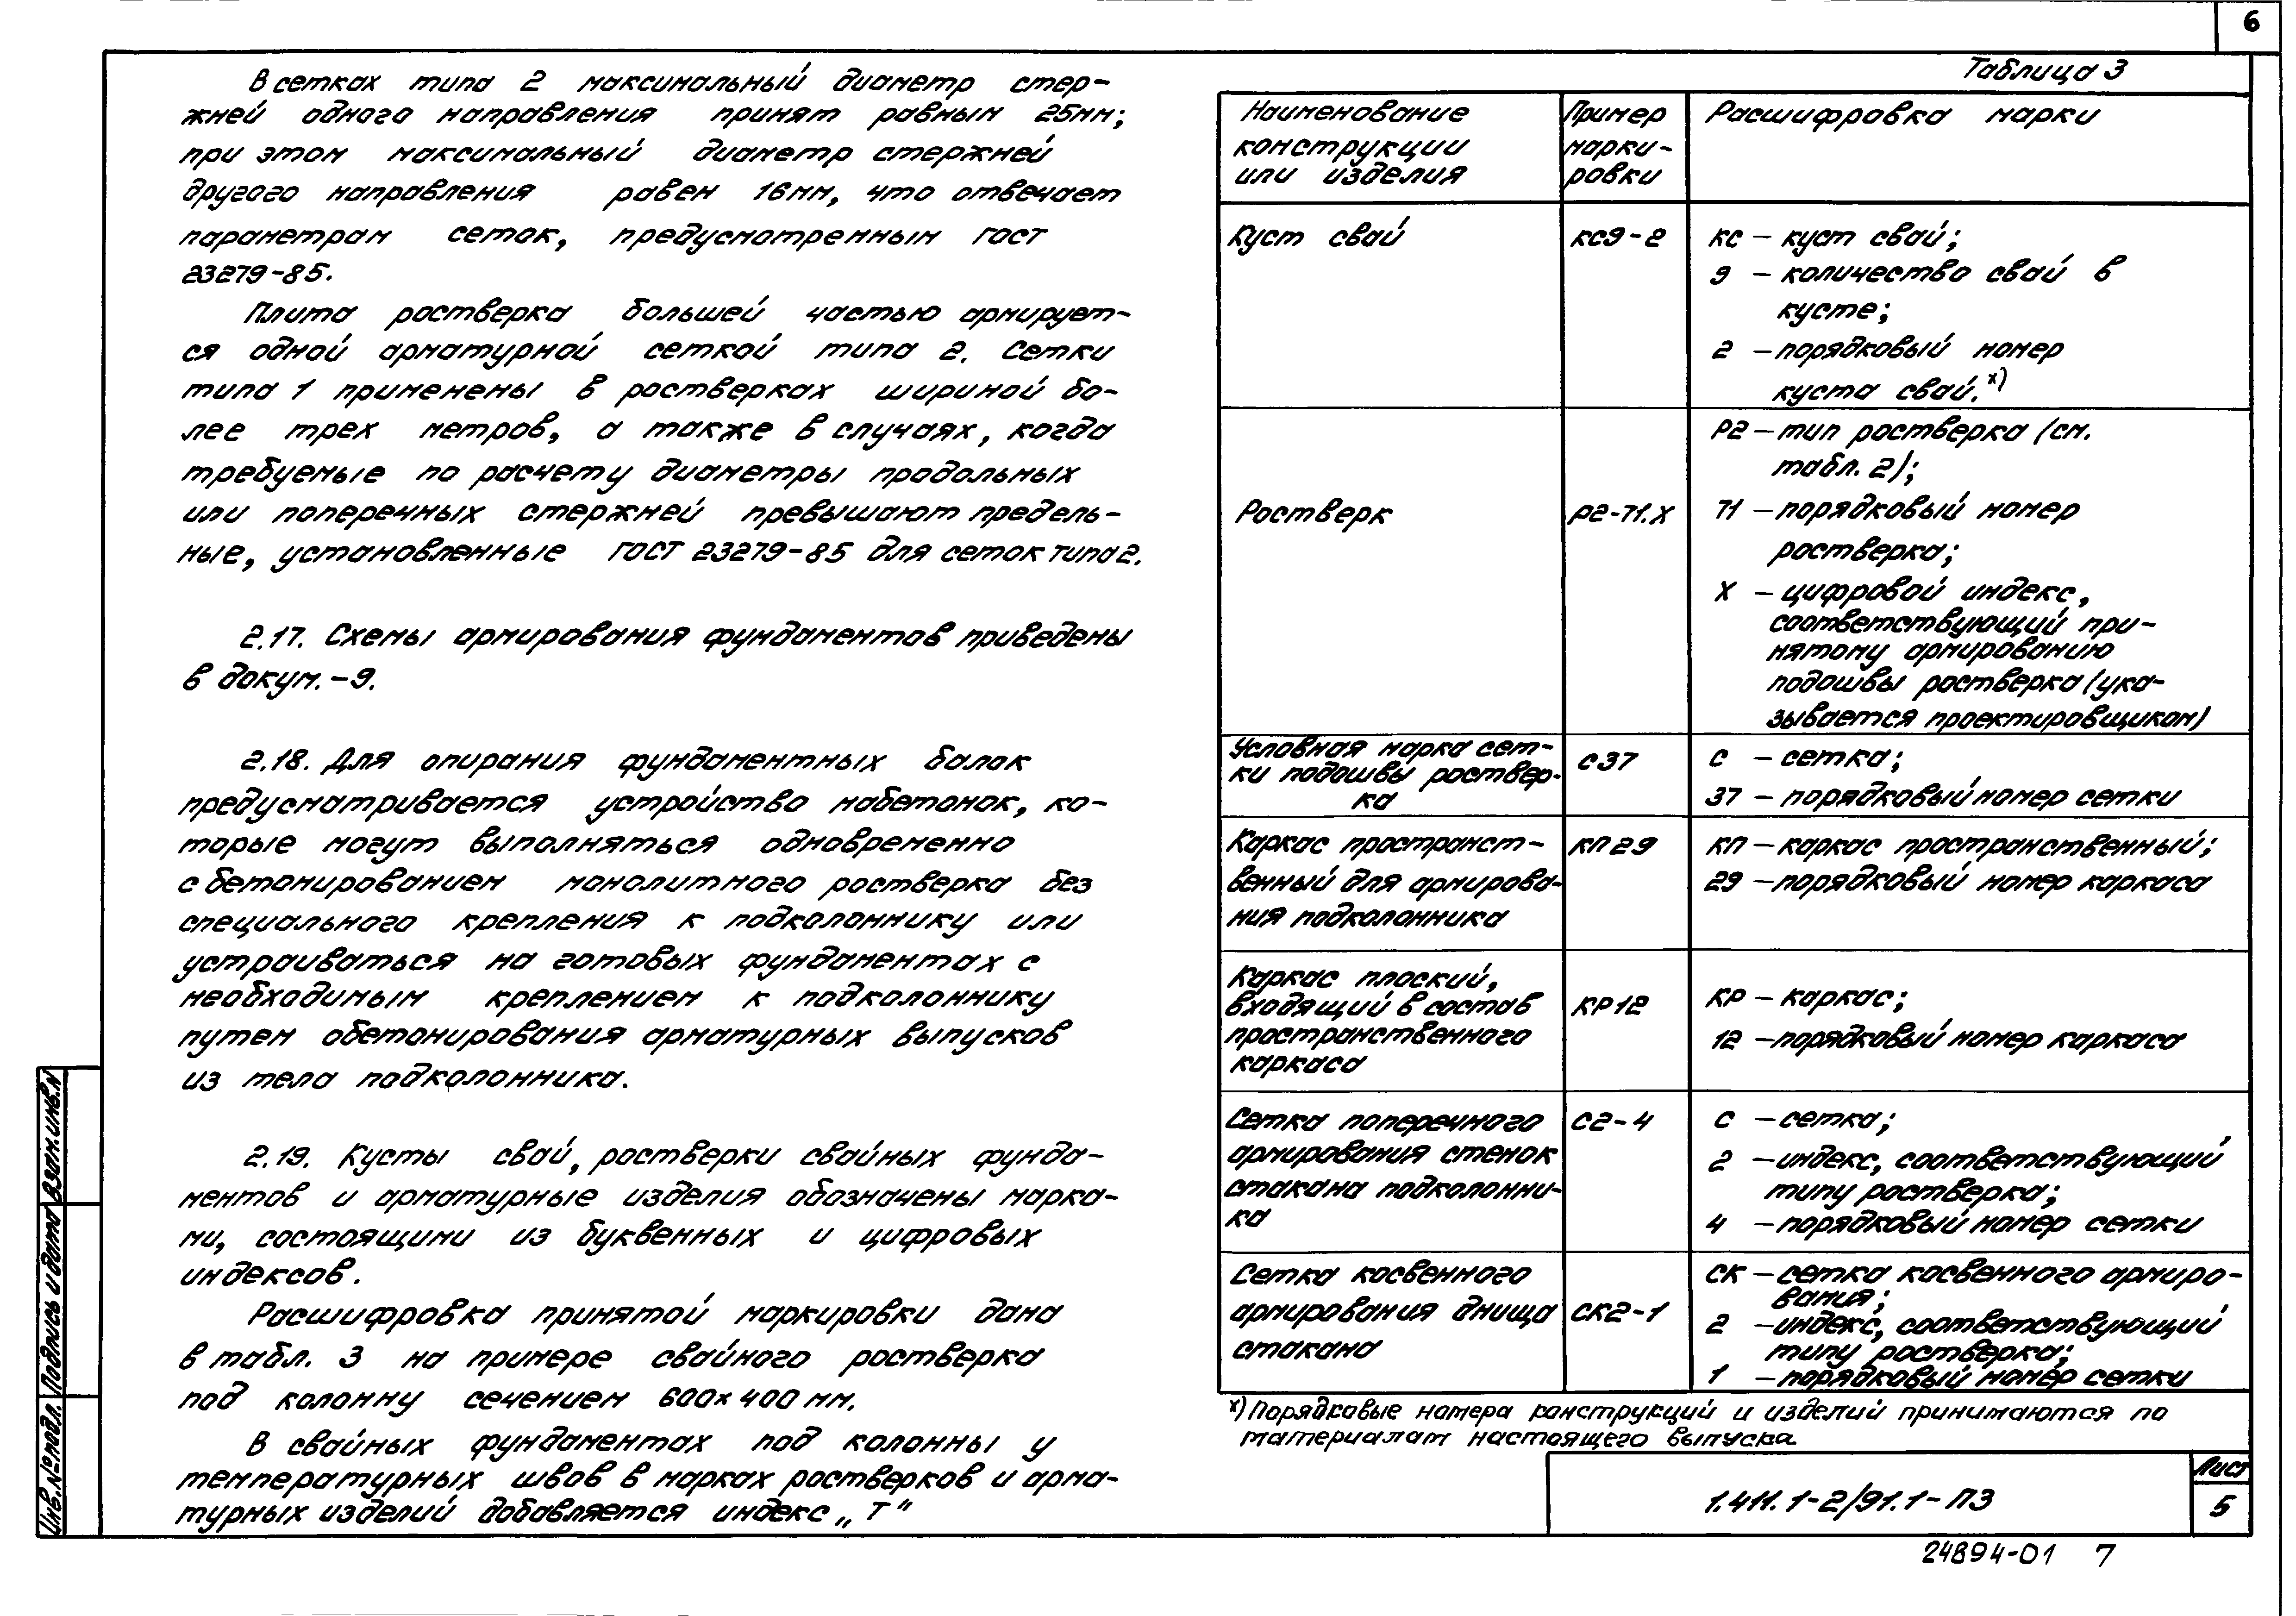 6
В сетках типа 2 максимальный диаметр стер-
жней одного направления принят равным 25мм;
при этом максимальный диаметр стержней
другого направления равен 16мм, что отвечает
параметрам сеток, предусмотренным ГОСТ
23279-85.
Плита ростверка большей частью армирует-
ся одной арматурной сеткой типа 2. Сетки
типа 1 применены в ростверках шириной бо-
лее трех метров, а также в случаях, когда
требуемые по расчету диаметры продольных
или поперечных стержней превышают предель-
ные, установленные ГОСТ 23279-85 для сеток типа 2.
2.17. Схемы армирования фундаментов приведены
в докум. -9.
2.18. Для опирания фундаментных балок
предусматривается устройство набетонок, ко-
торые могут выполняться одновременно
с бетонированием монолитного ростверка без
специального крепления к подколоннику или
устраиваться на готовых фундаментах с
необходимым креплением к подколоннику
путем обетонирования арматурных выпусков
из тела подколонника.
2.19. Кусты свай, ростверки свайных фунда-
ментов и арматурные изделия обозначены марка-
ми, состоящими из буквенных и цифровых
индексов.
Расшифровка принятой маркировки дана
в табл. 3 на примере свайного ростверка
под колонну сечением 600×400 мм.
В свайных фундаментах под колонны у
температурных швов в марках ростверков и арма-
турных изделий добавляется индекс „Т"
Таблица 3
Наименование конструкции или изделия
Пример марки- ровки
Расшифровка марки
Куст свай
КС9-2
КС – куст свай;
9 – количество свай в
кусте;
2 – порядковый номер
куста свай. х)
Ростверк
Р2-71.Х
Р2 – тип ростверка (см.
табл. 2);
71 – порядковый номер
ростверка;
Х – цифровой индекс,
соответствующий при-
нятому армированию
подошвы ростверка (ука-
зывается проектировщиком)
Условная марка сет-
ки подошвы роствер-
ка
С37
С – сетка;
37 – порядковый номер сетки
Каркас пространст-
венный для армирова-
ния подколонника
КП29
КП – каркас пространственный;
29 – порядковый номер каркаса
Каркас плоский,
входящий в состав
пространственного
каркаса
КР12
КР – каркас;
12 – порядковый номер каркаса
Сетка поперечного
армирования стенок
стакана подколонни-
ка
С2-4
С – сетка;
2 – индекс, соответствующий
типу ростверка;
4 – порядковый номер сетки
Сетка косвенного
армирования днища
стакана
СК2-1
СК – сетка косвенного армиро-
вания;
2 – индекс, соответствующий
типу ростверка;
1 – порядковый номер сетки
х) Порядковые номера конструкций и изделий принимаются по
материалам настоящего выпуска
1.411.1-2/91.1-ПЗ
Лист
5
24894-01 7
Инв.№подл. Подпись и дата Взам.инв.N